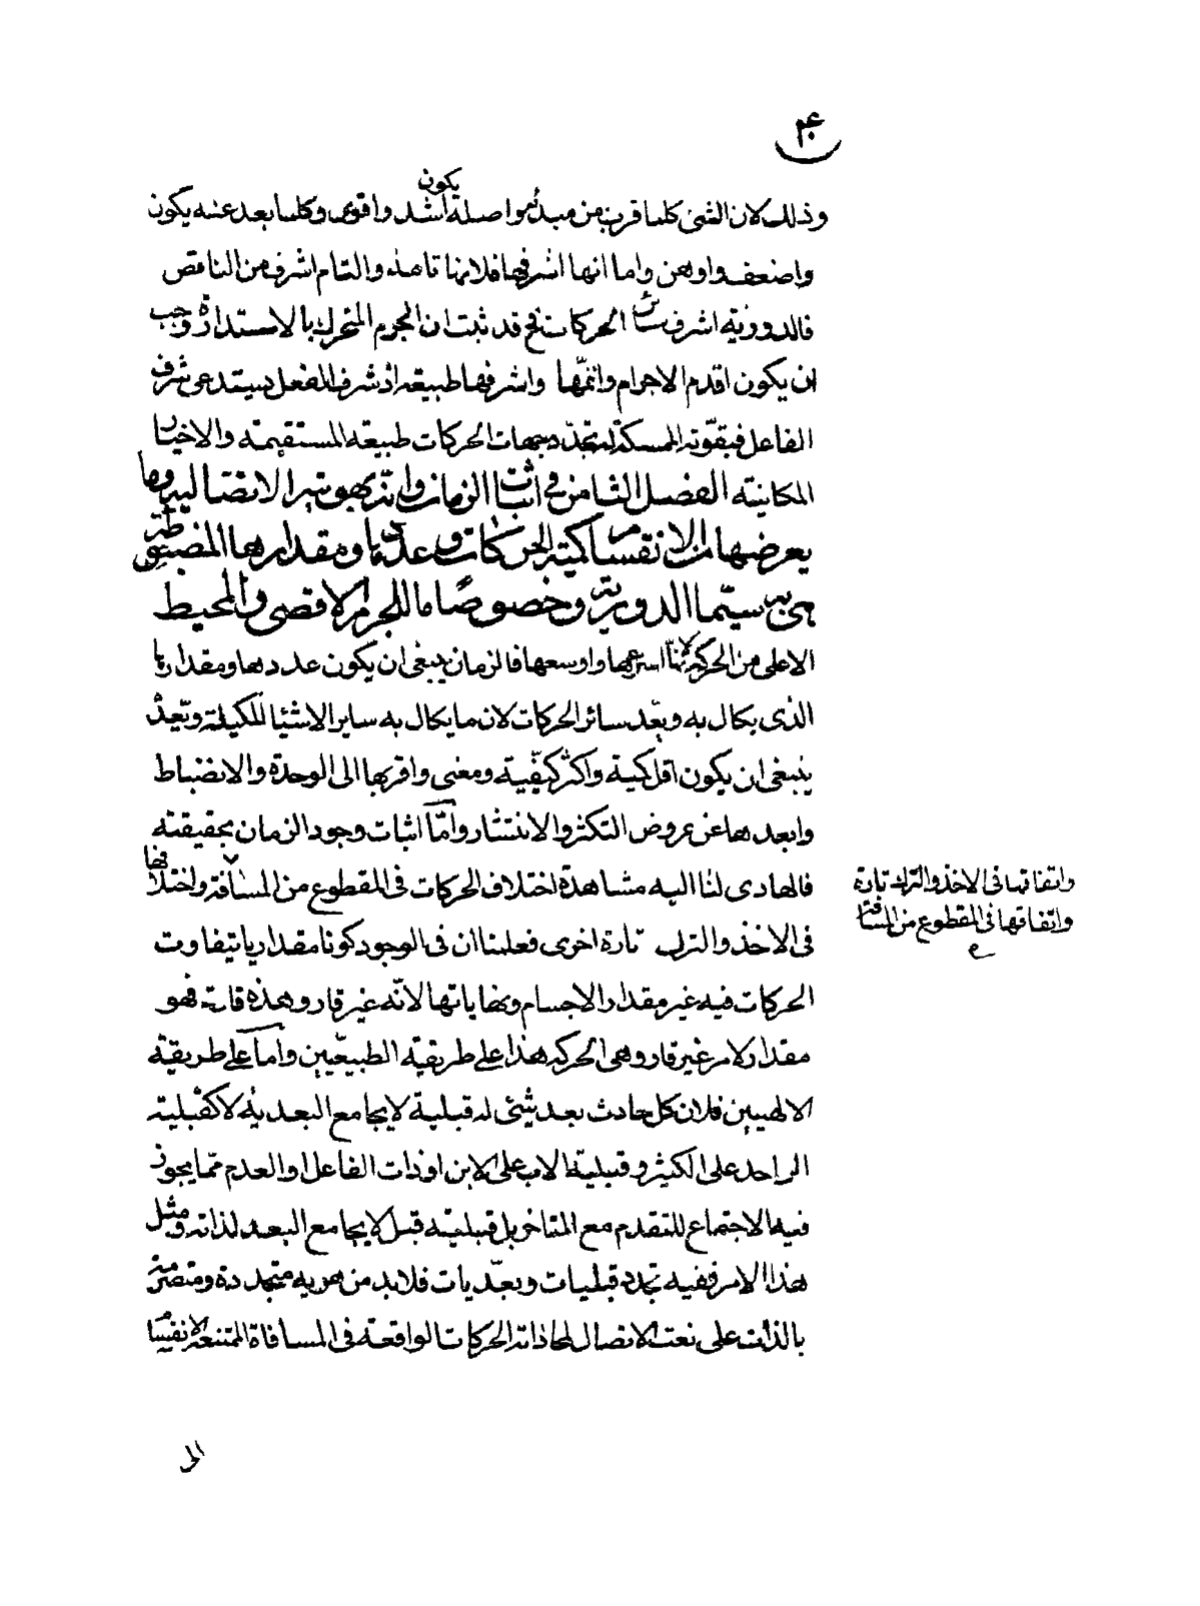 وذلك لان الشئ كلما قرب من مبدأ مواصلة يكون اشد واقوى وكلما بعد عنه يكون
واضعف واوهن واما انها اشرفها فلانها تامة والتام اشرف من الناقص
فالدورية اشرف سائر الحركات فح قد ثبت ان الجرم المتحرك بالاستدارة وجب
ان يكون اقدم الاجرام واتمّها واشرفها طبيعة اذ شرف الفعل يستدعى شرف
الفاعل فبقوّته الممسكة يتجدّد جهات الحركات طبيعة المستقيمة والاخيار
المكانية الفصل الثامن فى اثبات الزمان وانّ بهويته الاتصالية وما
يعرضها من الانقسام كمية الحركات وعددها ومقدارها المنضبطة
هى به سيّما الدورية وخصوصًا ما للجرم الاقصى والمحيط
الاعلى من الحركة لانّها اسرعها واوسعها فالزمان ينبغى ان يكون عددها ومقدارها
الذى يكال به ويعّد سائر الحركات لان ما يكال به ساير الاشيا المكيلة وتعدّ
ينبغى ان يكون اقل كمية واكثر كيفية ومعنى واقربها الى الوحدة والانضباط
وابعدها عن عروض التكثر والانتشار وامّا اثبات وجود الزمان بحقيقته
فالهادى لنا اليه مشاهدة اختلاف الحركات فى المقطوع من المسافة واختلافها
فى الاخذ والترك تارة اخرى فعلمنا ان فى الوجود كونا مقداريا يتفاوت
الحركات فيه غير مقدار الاجسام ونهاياتها لانّه غير قار وهذه قارة فهو
مقدار لامر غير قار وهى الحركة هذا على طريقة الطبيعيين واما على طريقة
الالهيين فلان كل حادث بعد شئ له قبلية لا يجامع البعدية لا كقبلية
الواحد على الكثير وقبلية الاب على الابن او ذات الفاعل او العدم ممّا يجوز
فيه الاجتماع للمتقدم مع المتاخر بل قبلية قبل لا يجامع البعد لذاته ومثل
هذا الامر ففيه تجدد قبليات وبعديات فلابد من هوية متجددة ومتصرمة
بالذات على نعت الاتصال لمحاذاته الحركات الواقعة فى المسافاة الممتنعة الانقسام
الى
واتفاقها فى الاخذ والترك تارة
واتّفاقها فى المقطوع من المسافة